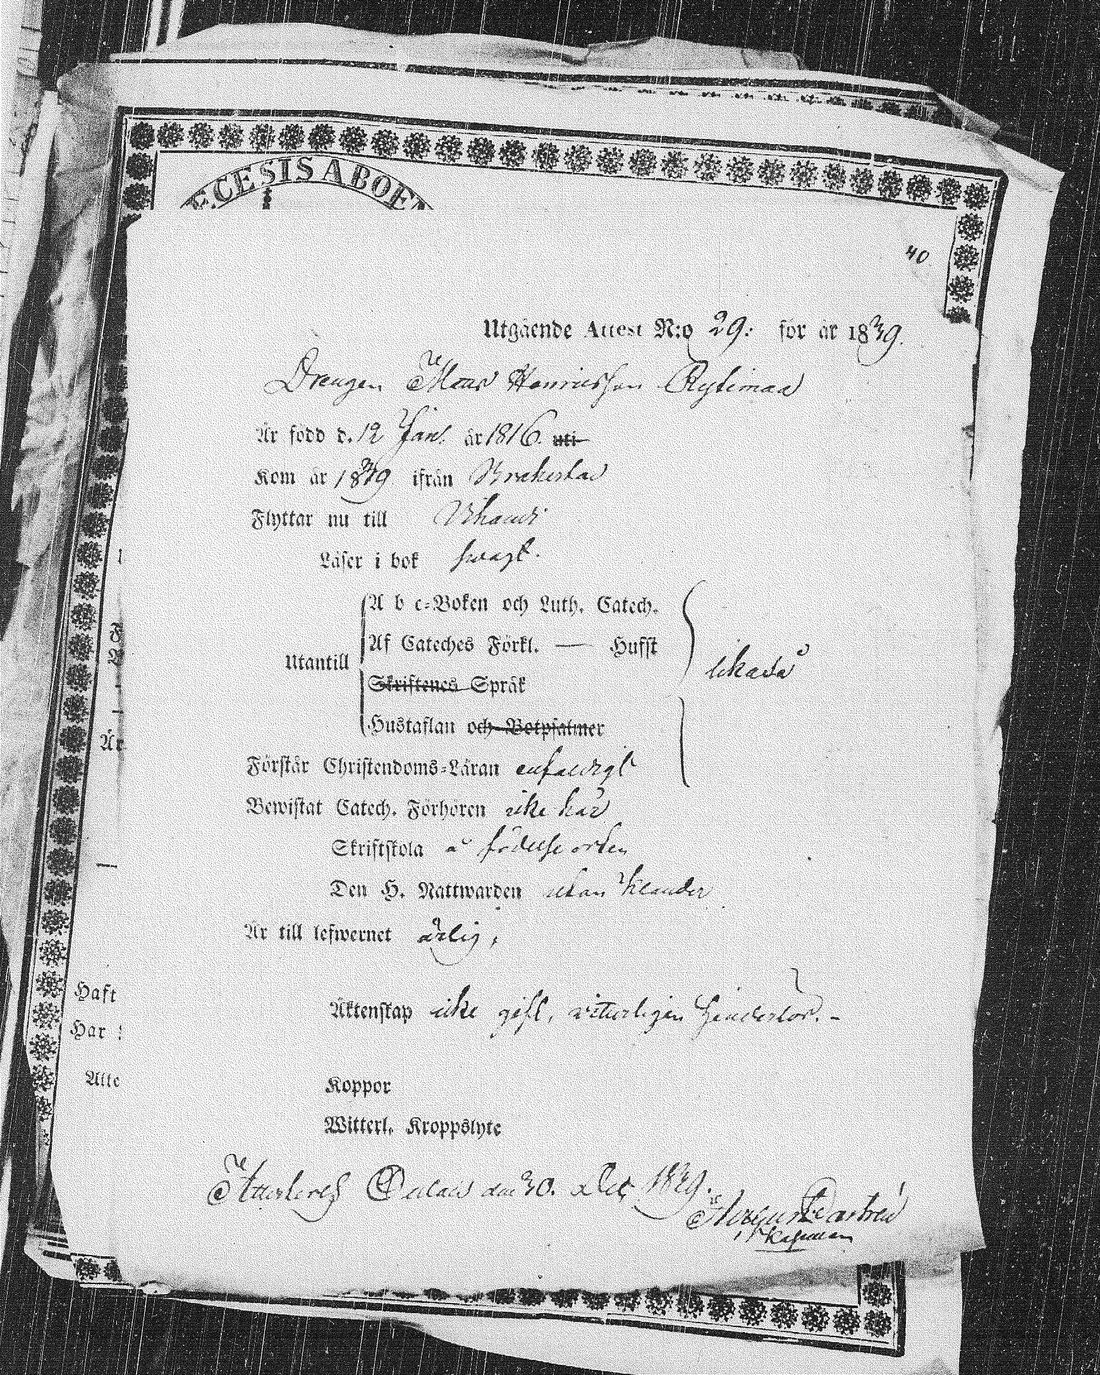 ECESIS ABOEN
40
Utgående Attest N:o 29. för år 1839.
Drengen Matts Henricsson Rytimaa
Är född d. 12 Jan. år 1816. uti
Kom år 1839 ifrån Brahestad
Flyttar nu till
Läser i bok svagt.
A b c-Boken och Luth. Catech.
Af Cateches Förkl. — Husst
Utantill
likaså
Skriftenes Språk
Hustaflan och Botpsalmer
Förstår Christendoms-Läran enfaldigt
Bewistat Catech. Förhören icke här
Skriftskola å födelse orten
Den H. Nattwarden utan klander
Är till lefwernet ärlig,
Äktenskap icke gift, witterligen hinderlös. -
Koppor
Witterl. Kroppslyte
den 30. Dec. 1839.
Är
Haft
Har
Atte